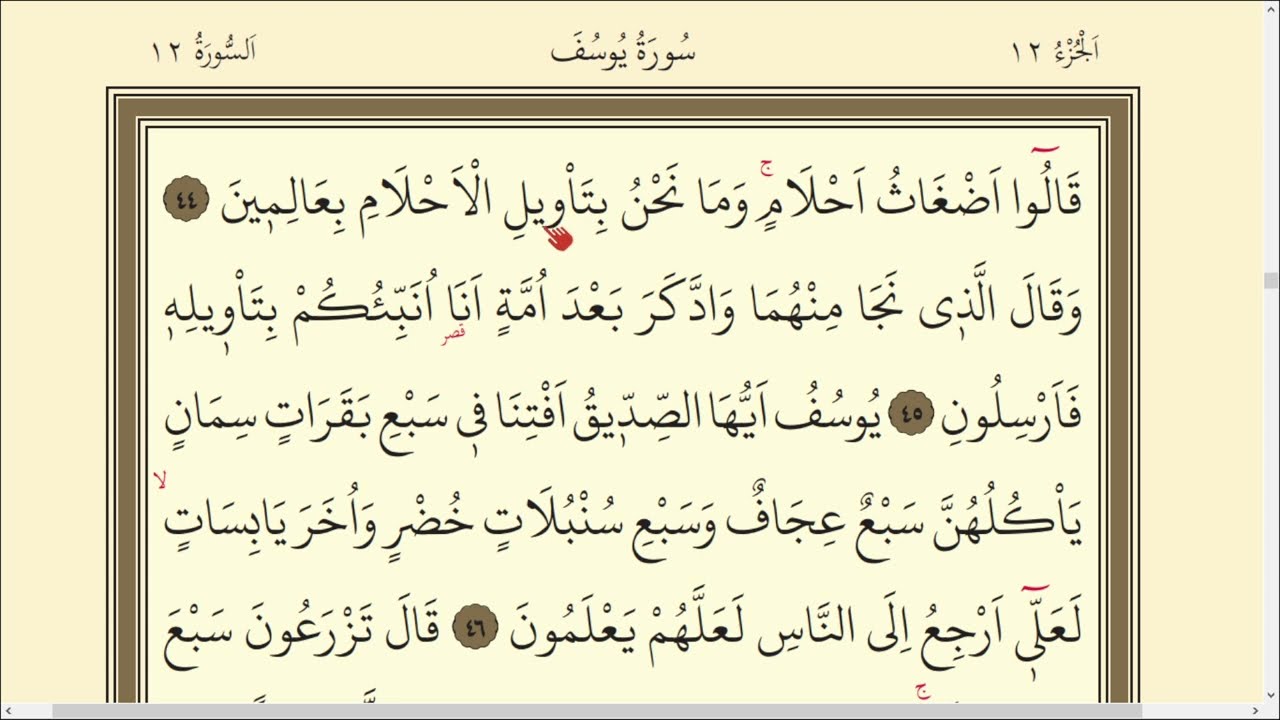 اَلْجُزْءُ ١٢ سُورَةُ يُوسُفَ اَلسُّورَةُ ١٢
قَالُٓوا اَضْغَاثُ اَحْلَامٍۚ وَمَا نَحْنُ بِتَاْوٖيلِ الْاَحْلَامِ بِعَالِمٖينَ ٤٤
وَقَالَ الَّذٖى نَجَا مِنْهُمَا وَادَّكَرَ بَعْدَ اُمَّةٍ اَنَا۬ قصر اُنَبِّئُكُمْ بِتَاْوٖيلِهٖ
فَاَرْسِلُونِ ٤٥ يُوسُفُ اَيُّهَا الصِّدّٖيقُ اَفْتِنَا فٖى سَبْعِ بَقَرَاتٍ سِمَانٍ
يَاْكُلُهُنَّ سَبْعٌ عِجَافٌ وَسَبْعِ سُنْبُلَاتٍ خُضْرٍ وَاُخَرَ يَابِسَاتٍۙ
لَعَلّٖٓى اَرْجِعُ اِلَى النَّاسِ لَعَلَّهُمْ يَعْلَمُونَ ٤٦ قَالَ تَزْرَعُونَ سَبْعَ